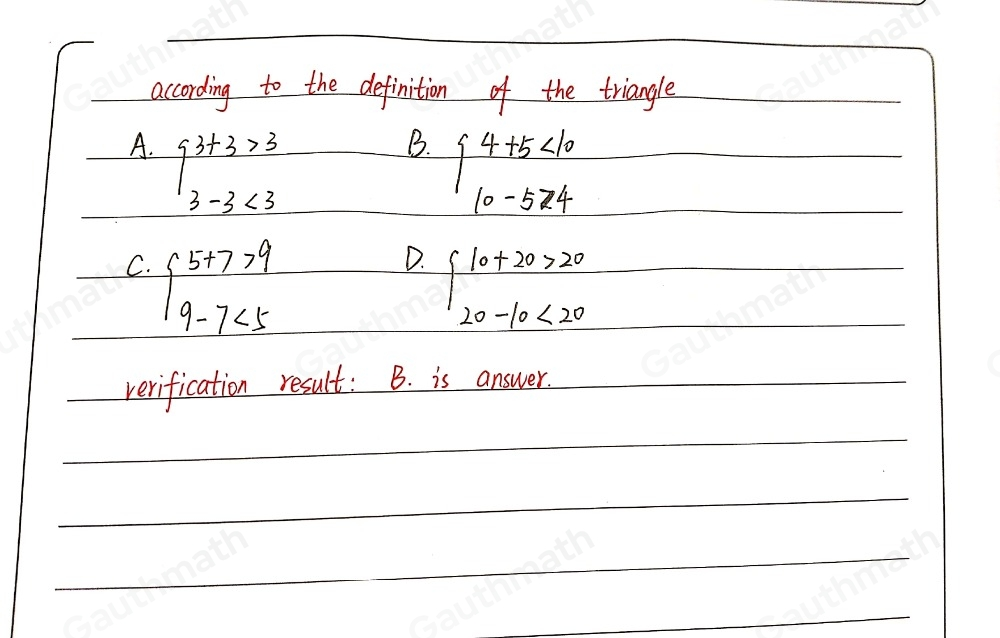 according to the definition of the triangle
A. { 3+3>3 B. { 4+5<10
3-3<3 10-5>4
C. { 5+7>9 D. { 10+20>20
9-7<5 20-10<20
verification result: B. is answer.
Gauthmath